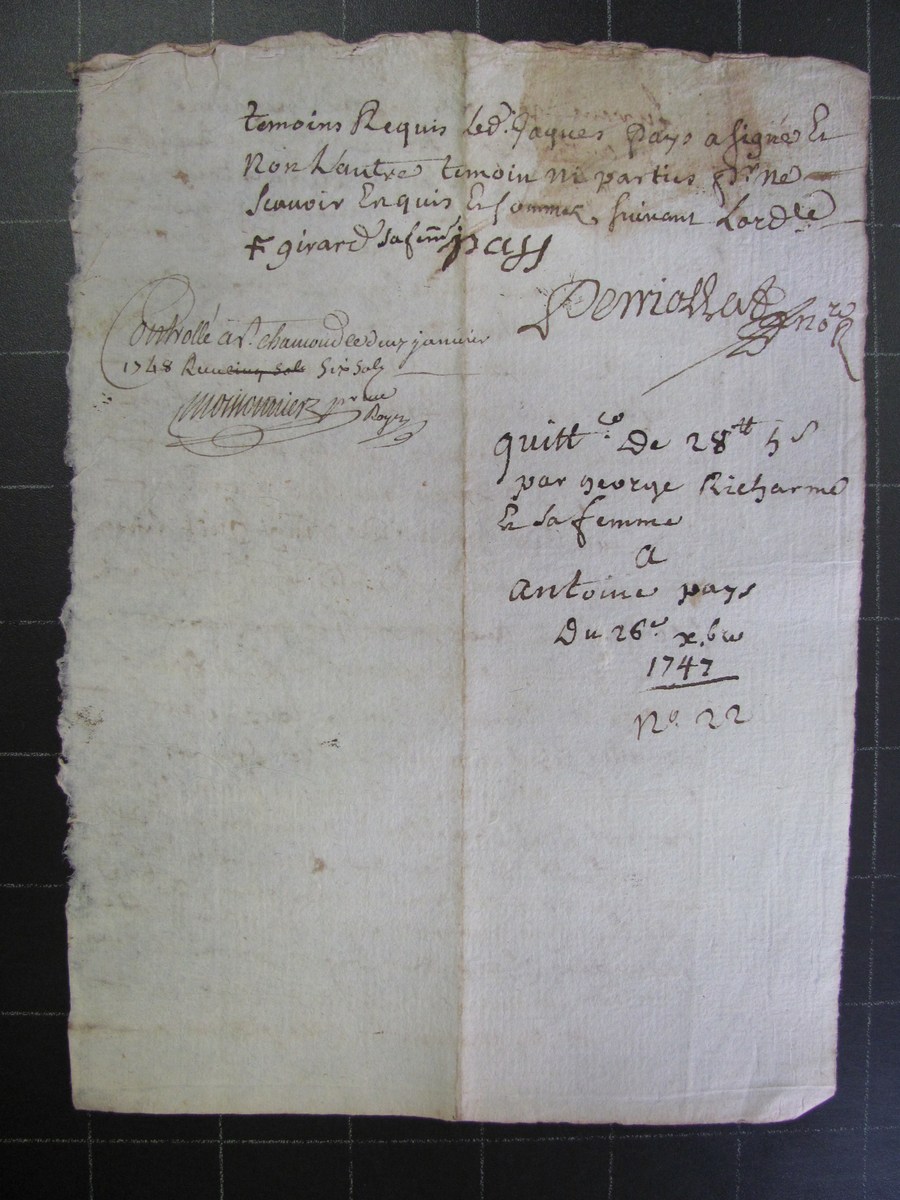 temoins Requis led. Jaques pays a signé Et
Non L'autre temoin ni parties pr. ne
scavoir Enquis Et sommez suivant Lord.ce
girard sa fem.
pays
Perriollat no.re
Controllé a St. chamond le deux janvier
1748 Reçu cinq sols six sols
royer
quitt.ce De 28tt 5s
par george Richarme
Et sa femme
a
antoine pays
Du 26.e x.bre
1747
No. 22